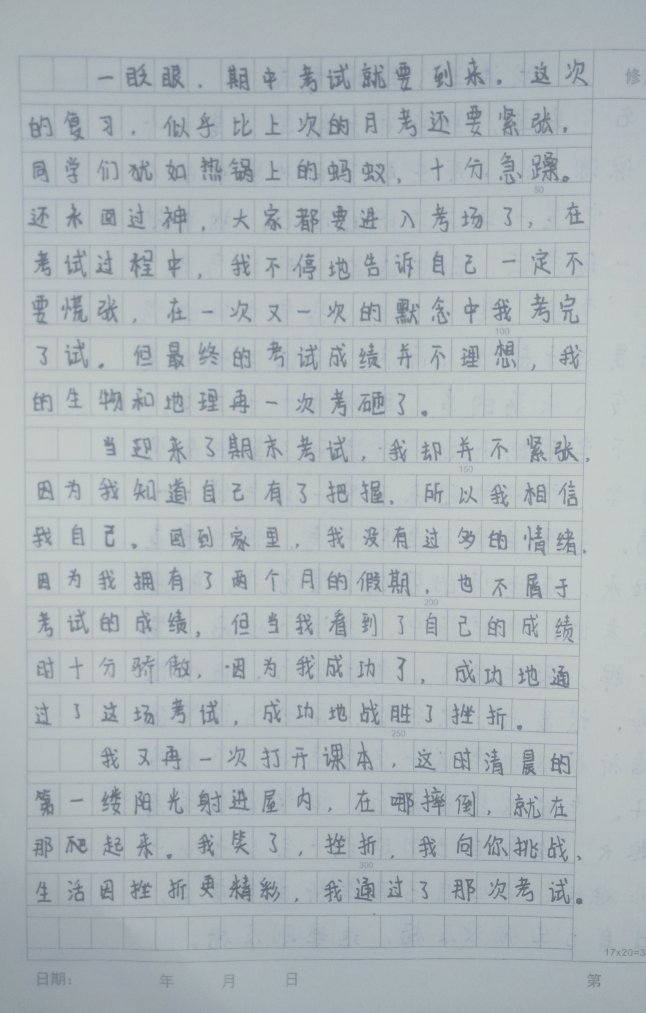 一眨眼，期中考试就要到来。这次
修
的复习，似乎比上次的月考还要紧张。
同学们犹如热锅上的蚂蚁，十分急躁。
50
还未回过神，大家都要进入考场了，在
考试过程中，我不停地告诉自己一定不
要慌张，在一次又一次的默念中我考完
100
了试。但最终的考试成绩并不理想，我
的生物和地理再一次考砸了。
当迎来了期末考试，我却并不紧张，
150
因为我知道自己有了把握，所以我相信
我自己。回到家里，我没有过多的情绪，
因为我拥有了两个月的假期，也不屑于
200
考试的成绩，但当我看到了自己的成绩
时十分骄傲，因为我成功了，成功地通
过了这场考试，成功地战胜了挫折。
250
我又再一次打开课本，这时清晨的
第一缕阳光射进屋内，在哪摔倒，就在
那爬起来。我笑了，挫折，我向你挑战，
300
生活因挫折更精彩，我通过了那次考试。
17x20=3
日期： 年 月 日 第